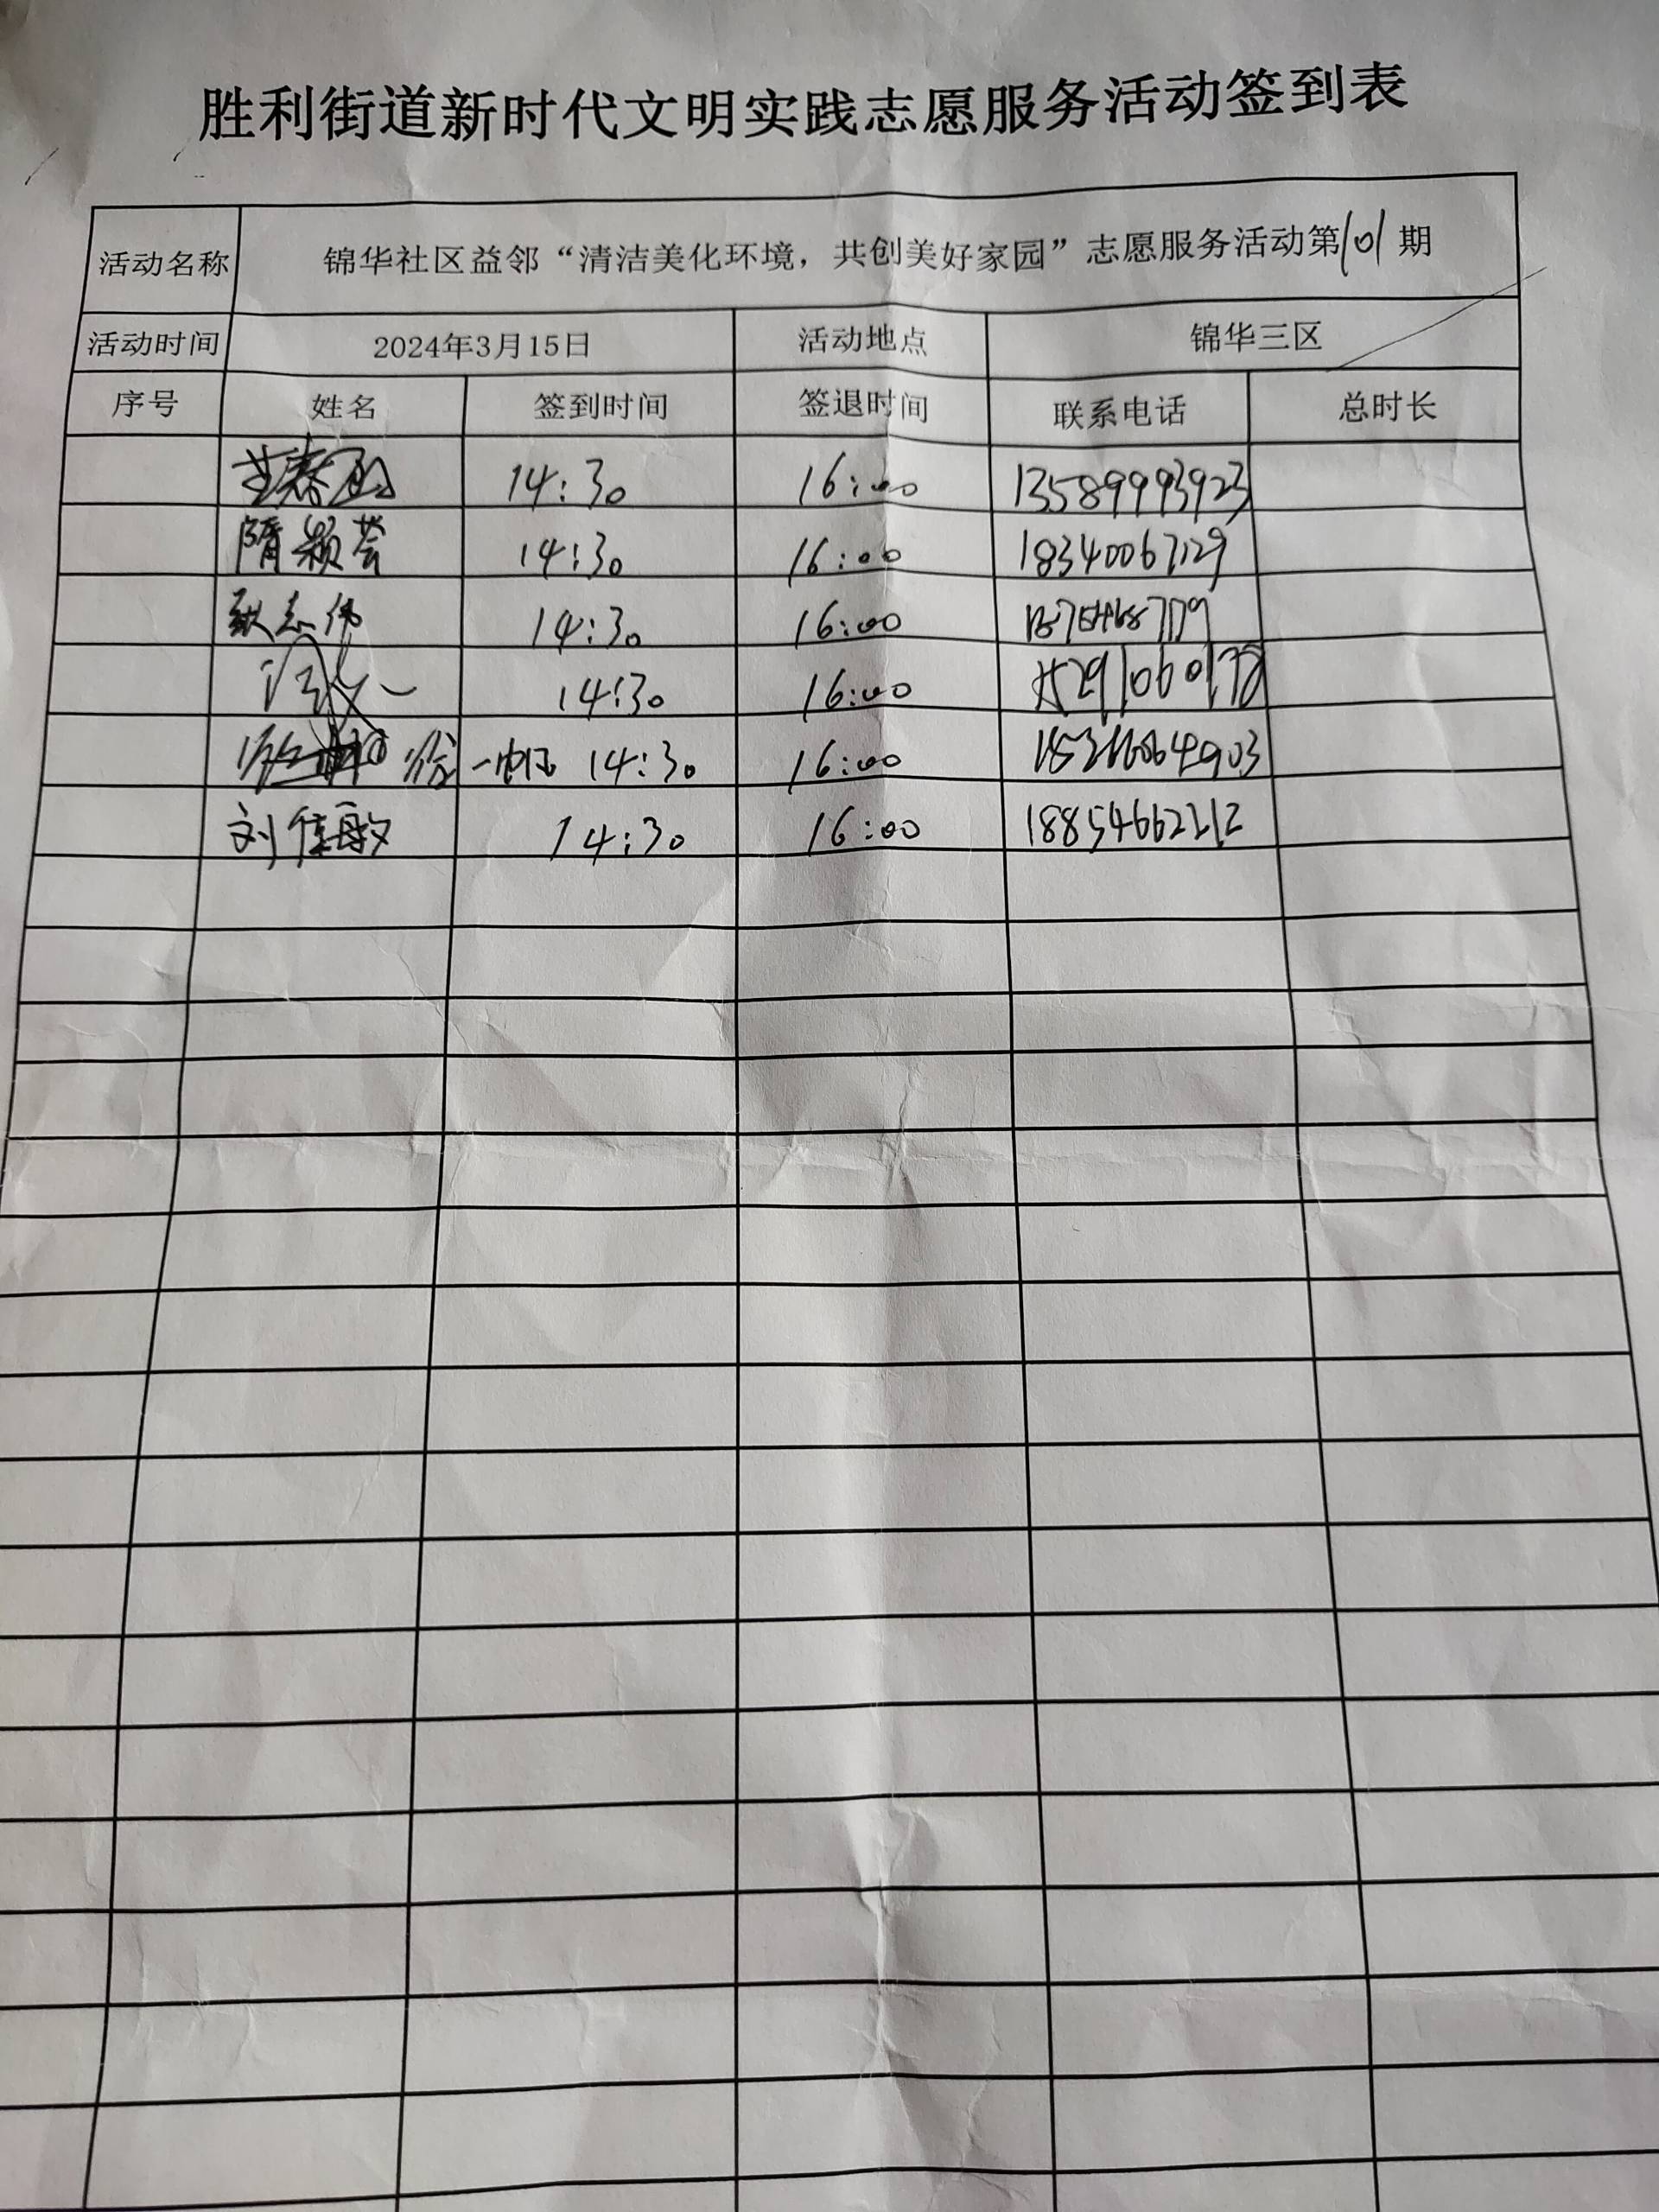 胜利街道新时代文明实践志愿服务活动签到表
活动名称 锦华社区益邻“清洁美化环境，共创美好家园”志愿服务活动第101期
活动时间 2024年3月15日 活动地点 锦华三区
序号 姓名 签到时间 签退时间 联系电话 总时长
14:30 16:00 13589993923
隋颖荟 14:30 16:00 18340067129
耿志伟 14:30 16:00
14:30 16:00
14:30 16:00
刘佳敏 14:30 16:00 18854662212